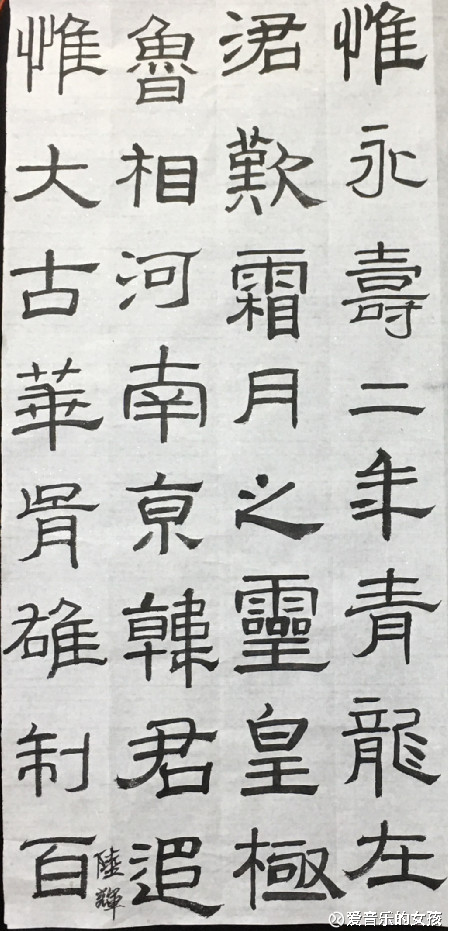 惟永壽二年青龍在
涒歎霜月之靈皇極
魯相河南京韓君追
惟大古華胥雄制百
陸輝
爱音乐的女孩